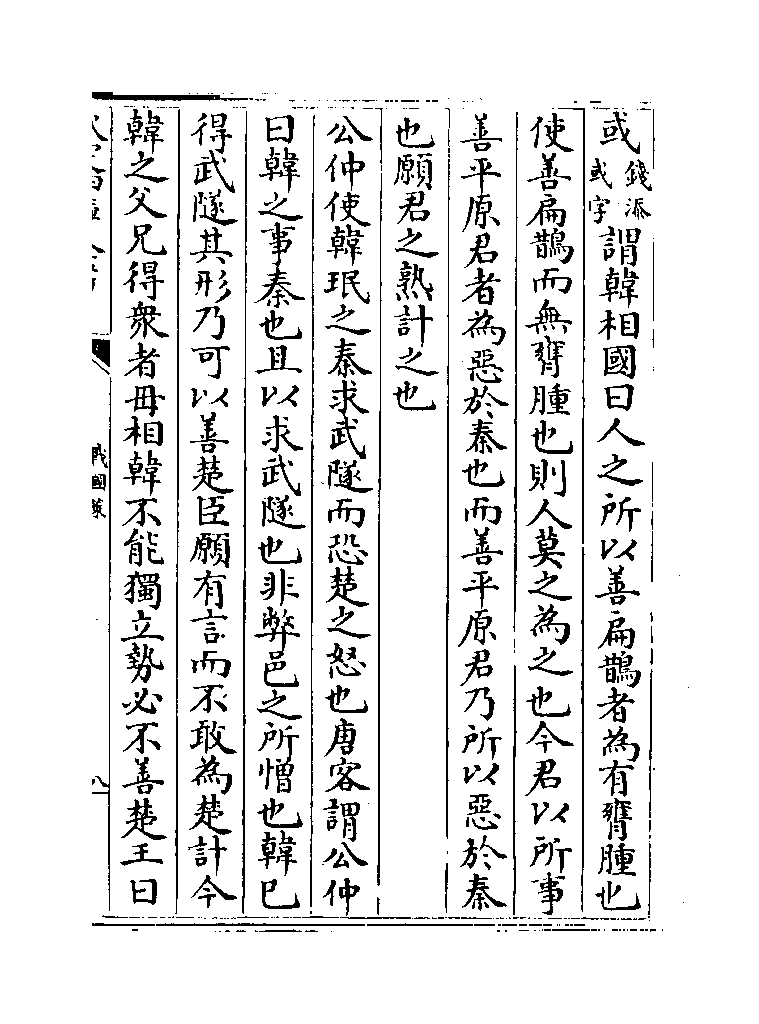 或錢添或字謂韓相國曰人之所以善扁鵲者為有臃腫也
使善扁鵲而無臃腫也則人莫之為之也今君以所事
善平原君者為惡於秦也而善平原君乃所以惡於秦
也願君之熟計之也
公仲使韓珉之秦求武隧而恐楚之怒也唐客謂公仲
曰韓之事秦也且以求武隧也非弊邑之所憎也韓已
得武隧其形乃可以善楚臣願有言而不敢為楚計今
韓之父兄得衆者毋相韓不能獨立勢必不善楚王曰
戰國策
八